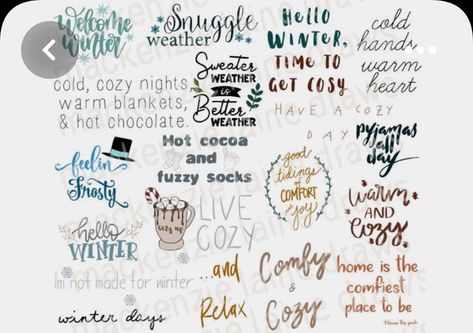 Welcome
Winter
Snuggle
weather
Hello
WINTER,
TIME TO
GET COSY
cold
hands
warm
heart
cold, cozy nights,
warm blankets,
& hot chocolate.
Sweater
WEATHER
is
Better
WEATHER
HAVE A COZY
DAY
pyjamas
all
day
feelin
Frosty
Hot cocoa
and
fuzzy socks
good
tidings
of
COMFORT
and
joy
warm
AND
Cozy
hello
WINTER
COZY UP
LIVE
COZY
Im not made for winter
winter days
...and
Relax
Comfy
&
Cozy
home is the
comfiest
place to be